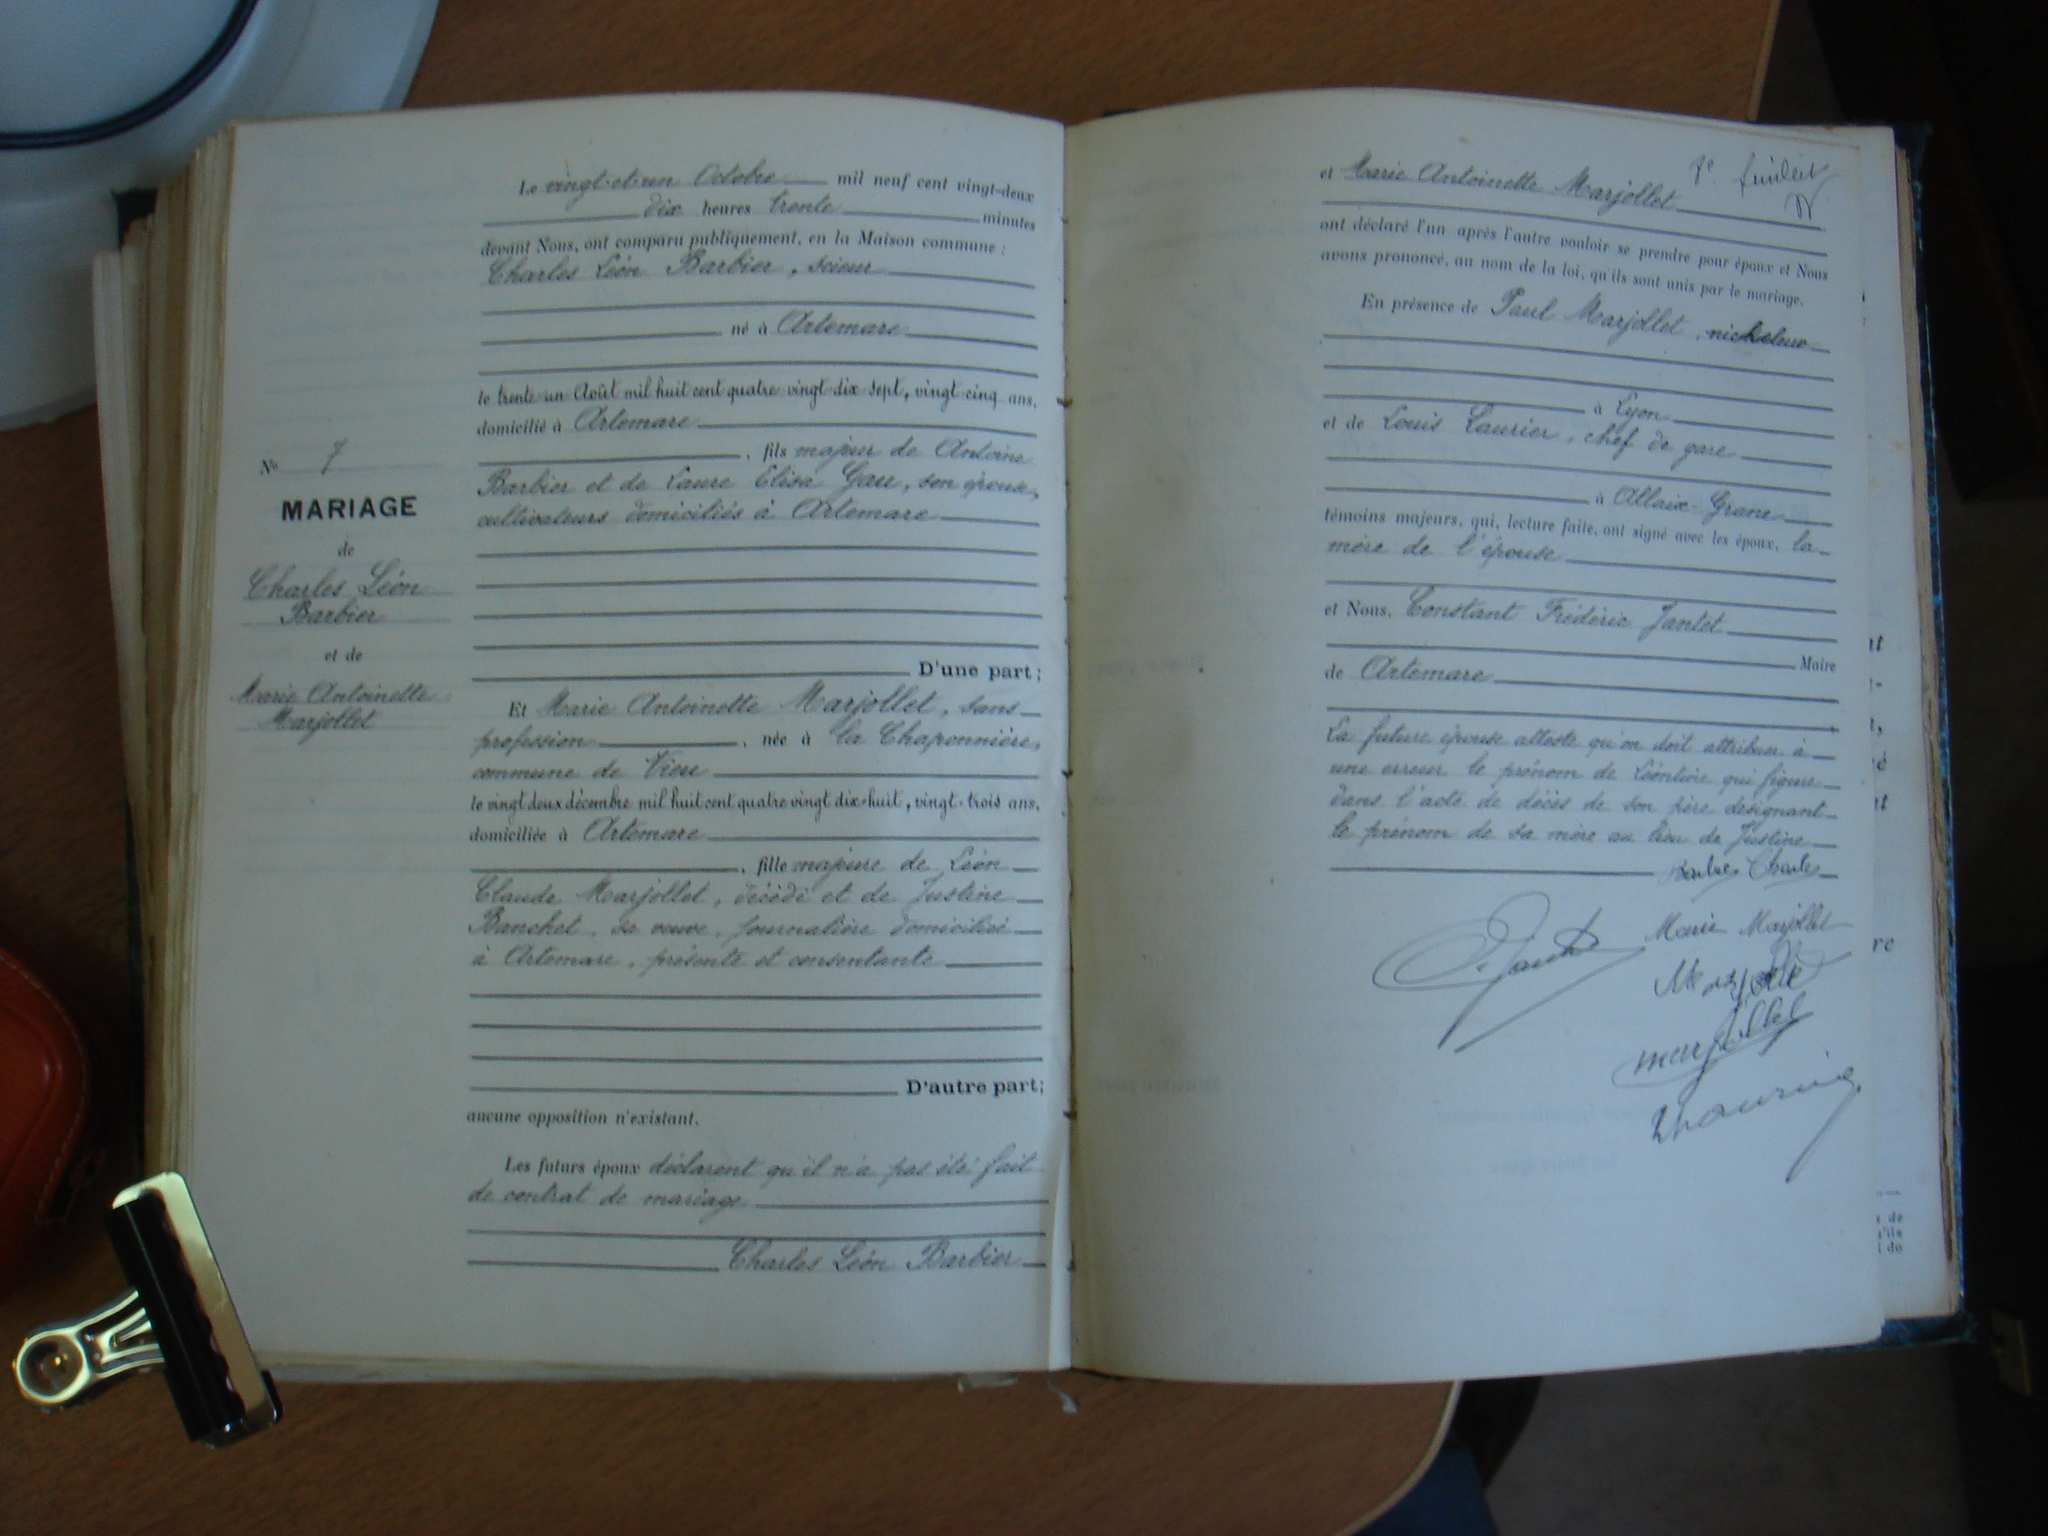 Le vingt-et-un Octobre mil neuf cent vingt-deux
dix heures trente minutes
devant Nous, ont comparu publiquement, en la Maison commune :
Charles Léon Barbier, scieur
né à Artemare
le trente-un Août mil huit cent quatre vingt dix-sept, vingt-cinq ans,
domicilié à Artemare
, fils majeur de Antoine
Barbier et de Laure Elisa Gau, son épouse,
cultivateurs domiciliés à Artemare
D'une part;
Et Marie Antoinette Marjollet, sans
profession, née à la Chaponnière,
commune de Vieu
le vingt deux décembre mil huit cent quatre vingt dix-huit, vingt-trois ans,
domiciliée à Artemare
, fille majeure de Léon
Claude Marjollet, décédé et de Justine
Banchet, sa veuve, journalière domiciliée
à Artemare, présente et consentante
D'autre part;
aucune opposition n'existant.
Les futurs époux déclarent qu'il n'a pas été fait
de contrat de mariage
Charles Léon Barbier
N° 7
MARIAGE
de
Charles Léon
Barbier
et de
Marie Antoinette
Marjollet
7e feuillet
et Marie Antoinette Marjollet
ont déclaré l'un après l'autre vouloir se prendre pour époux et Nous
avons prononcé, au nom de la loi, qu'ils sont unis par le mariage.
En présence de Paul Marjollet, nickeleur
à Lyon
et de Louis Laurier, chef de gare
à Allaix-Grane
témoins majeurs, qui, lecture faite, ont signé avec les époux, la
mère de l'épouse
et Nous, Constant Frédéric Jantet
Maire
de Artemare
La future épouse atteste qu'on doit attribuer à
une erreur le prénom de Léontine qui figure
dans l'acte de décès de son père désignant
le prénom de sa mère au lieu de Justine
Barbier Charles
Marie Marjollet
marjollet